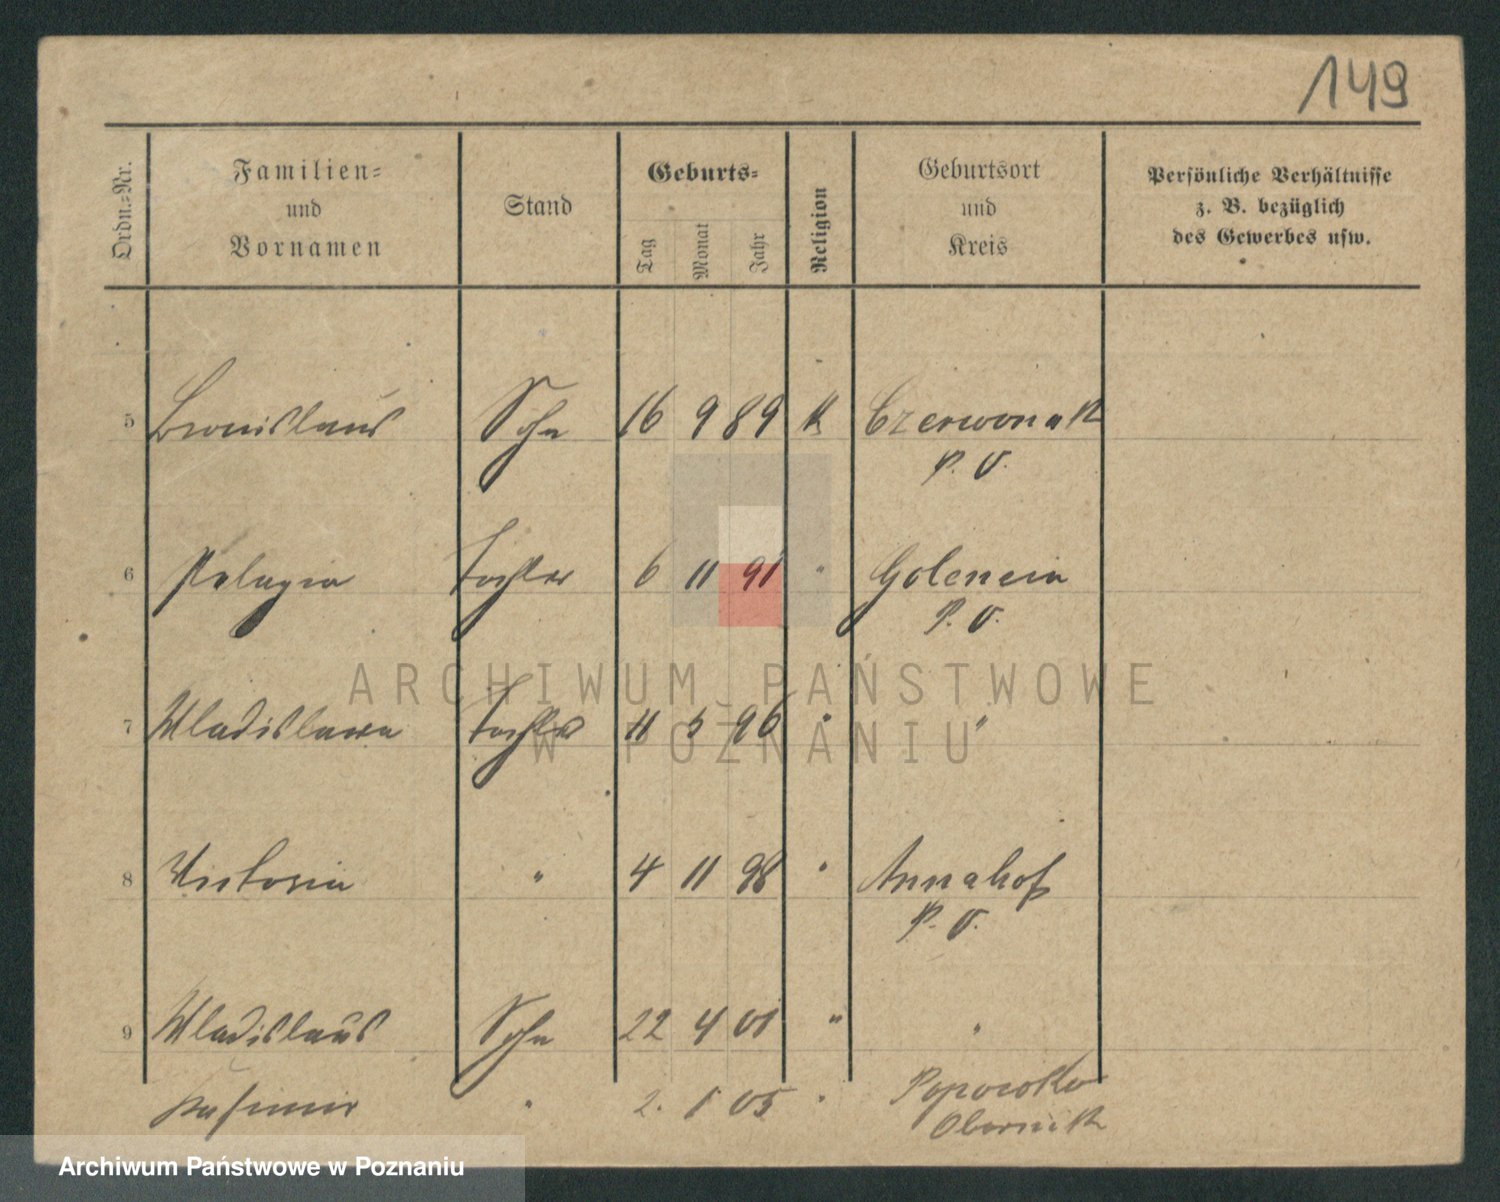 149
Ordn.=Nr.
Familien=
und
Vornamen
Stand
Geburts=
Tag
Monat
Jahr
Religion
Geburtsort
und
Kreis
Persönliche Verhältnisse
z. B. bezüglich
des Gewerbes usw.
5 Bronislaus Sohn 16 9 89 k Czerwonak
P. O.
6 Pelagia Tochter 6 11 91 " Golencin
P. O.
7 Wladislawa Tochter 11 5 96 " "
8 Victoria " 4 11 98 " Annahof
P. O.
9 Wladislaus Sohn 22 4 01 " "
Kasimir " 2. 1 05 " Popowko
Obornik
ARCHIWUM PAŃSTWOWE
W POZNANIU
Archiwum Państwowe w Poznaniu